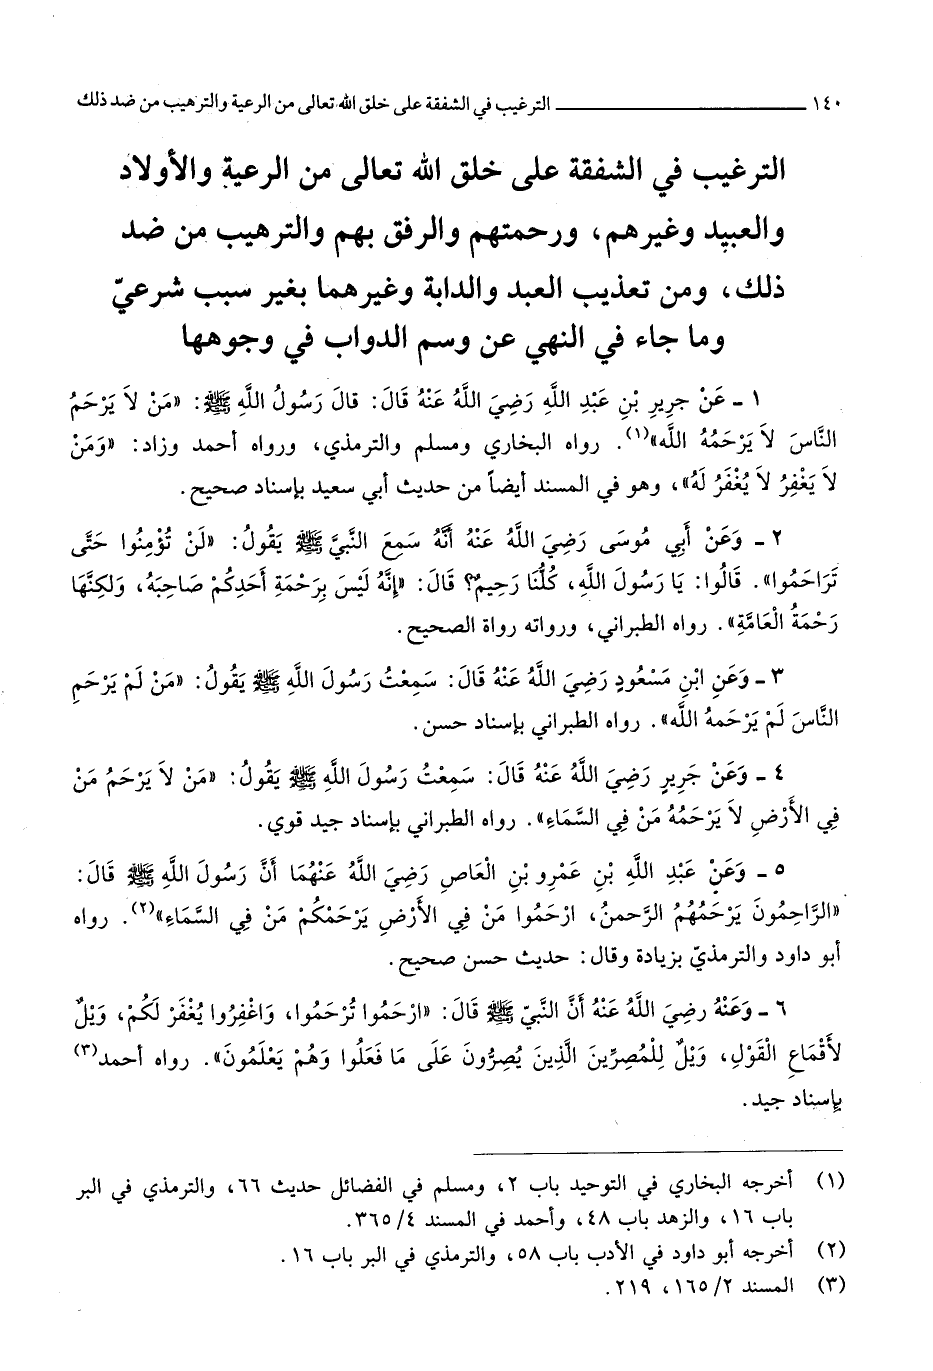 ١٤٠ ـــــــــــــــــــــــ الترغيب في الشفقة على خلق الله تعالى من الرعية والترهيب من ضد ذلك
الترغيب في الشفقة على خلق الله تعالى من الرعية والأولاد
والعبيد وغيرهم، ورحمتهم والرفق بهم والترهيب من ضد
ذلك، ومن تعذيب العبد والدابة وغيرهما بغير سبب شرعيّ
وما جاء في النهي عن وسم الدواب في وجوهها
١ ـ عَنْ جريرِ بْنِ عَبْدِ اللَّهِ رَضِيَ اللَّهُ عَنْهُ قَالَ: قالَ رَسُولُ اللَّهِ ﷺ: «مَنْ لاَ يَرْحَمُ
النَّاسَ لاَ يَرْحَمُهُ اللَّه»(١). رواه البخاري ومسلم والترمذي، ورواه أحمد وزاد: «وَمَنْ
لاَ يَغْفِرُ لاَ يُغْفَرُ لَهُ»، وهو في المسند أيضاً من حديث أبي سعيد بإسناد صحيح.
٢ ـ وَعَنْ أَبِي مُوسَى رَضِيَ اللَّهُ عَنْهُ أَنَّهُ سَمِعَ النَّبِيَّ ﷺ يَقُولُ: «لَنْ تُؤْمِنُوا حَتَّى
تَرَاحَمُوا». قَالُوا: يَا رَسُولَ اللَّهِ، كُلُّنَا رَحِيمٌ؟ قَالَ: «إِنَّهُ لَيْسَ بِرَحْمَةِ أَحَدِكُمْ صَاحِبَهُ، وَلكِنَّهَا
رَحْمَةُ الْعَامَّةِ». رواه الطبراني، ورواته رواة الصحيح.
٣ ـ وَعَنِ ابْنِ مَسْعُودٍ رَضِيَ اللَّهُ عَنْهُ قَالَ: سَمِعْتُ رَسُولَ اللَّهِ ﷺ يَقُولُ: «مَنْ لَمْ يَرْحَمِ
النَّاسَ لَمْ يَرْحَمهُ اللَّه». رواه الطبراني بإسناد حسن.
٤ ـ وَعَنْ جَرِيرٍ رَضِيَ اللَّهُ عَنْهُ قَالَ: سَمِعْتُ رَسُولَ اللَّهِ ﷺ يَقُولُ: «مَنْ لاَ يَرْحَمُ مَنْ
فِي الأَرْضِ لاَ يَرْحَمُهُ مَنْ فِي السَّمَاءِ». رواه الطبراني بإسناد جيد قوي.
٥ ـ وَعَنْ عَبْدِ اللَّهِ بْنِ عَمْرِو بْنِ الْعَاصِ رَضِيَ اللَّهُ عَنْهُمَا أَنَّ رَسُولَ اللَّهِ ﷺ قَالَ:
«الرَّاحِمُونَ يَرْحَمُهُمُ الرَّحمنُ، ارْحَمُوا مَنْ فِي الأَرْضِ يَرْحَمْكُمْ مَنْ فِي السَّمَاءِ»(٢). رواه
أبو داود والترمذيّ بزيادة وقال: حديث حسن صحيح.
٦ ـ وَعَنْهُ رضِيَ اللَّهُ عَنْهُ أَنَّ النَّبِيّ ﷺ قَالَ: «ارْحَمُوا تُرْحَمُوا، وَاغْفِرُوا يُغْفَرْ لَكُمْ، وَيْلٌ
لأَقْمَاعِ الْقَوْلِ، وَيْلٌ لِلْمُصِرِّينَ الَّذِينَ يُصِرُّونَ عَلَى مَا فَعَلُوا وَهُمْ يَعْلَمُونَ». رواه أحمد(٣)
بإسناد جيد.
(١) أخرجه البخاري في التوحيد باب ٢، ومسلم في الفضائل حديث ٦٦، والترمذي في البر
باب ١٦، والزهد باب ٤٨، وأحمد في المسند ٤/ ٣٦٥.
(٢) أخرجه أبو داود في الأدب باب ٥٨، والترمذي في البر باب ١٦.
(٣) المسند ٢/ ١٦٥، ٢١٩.